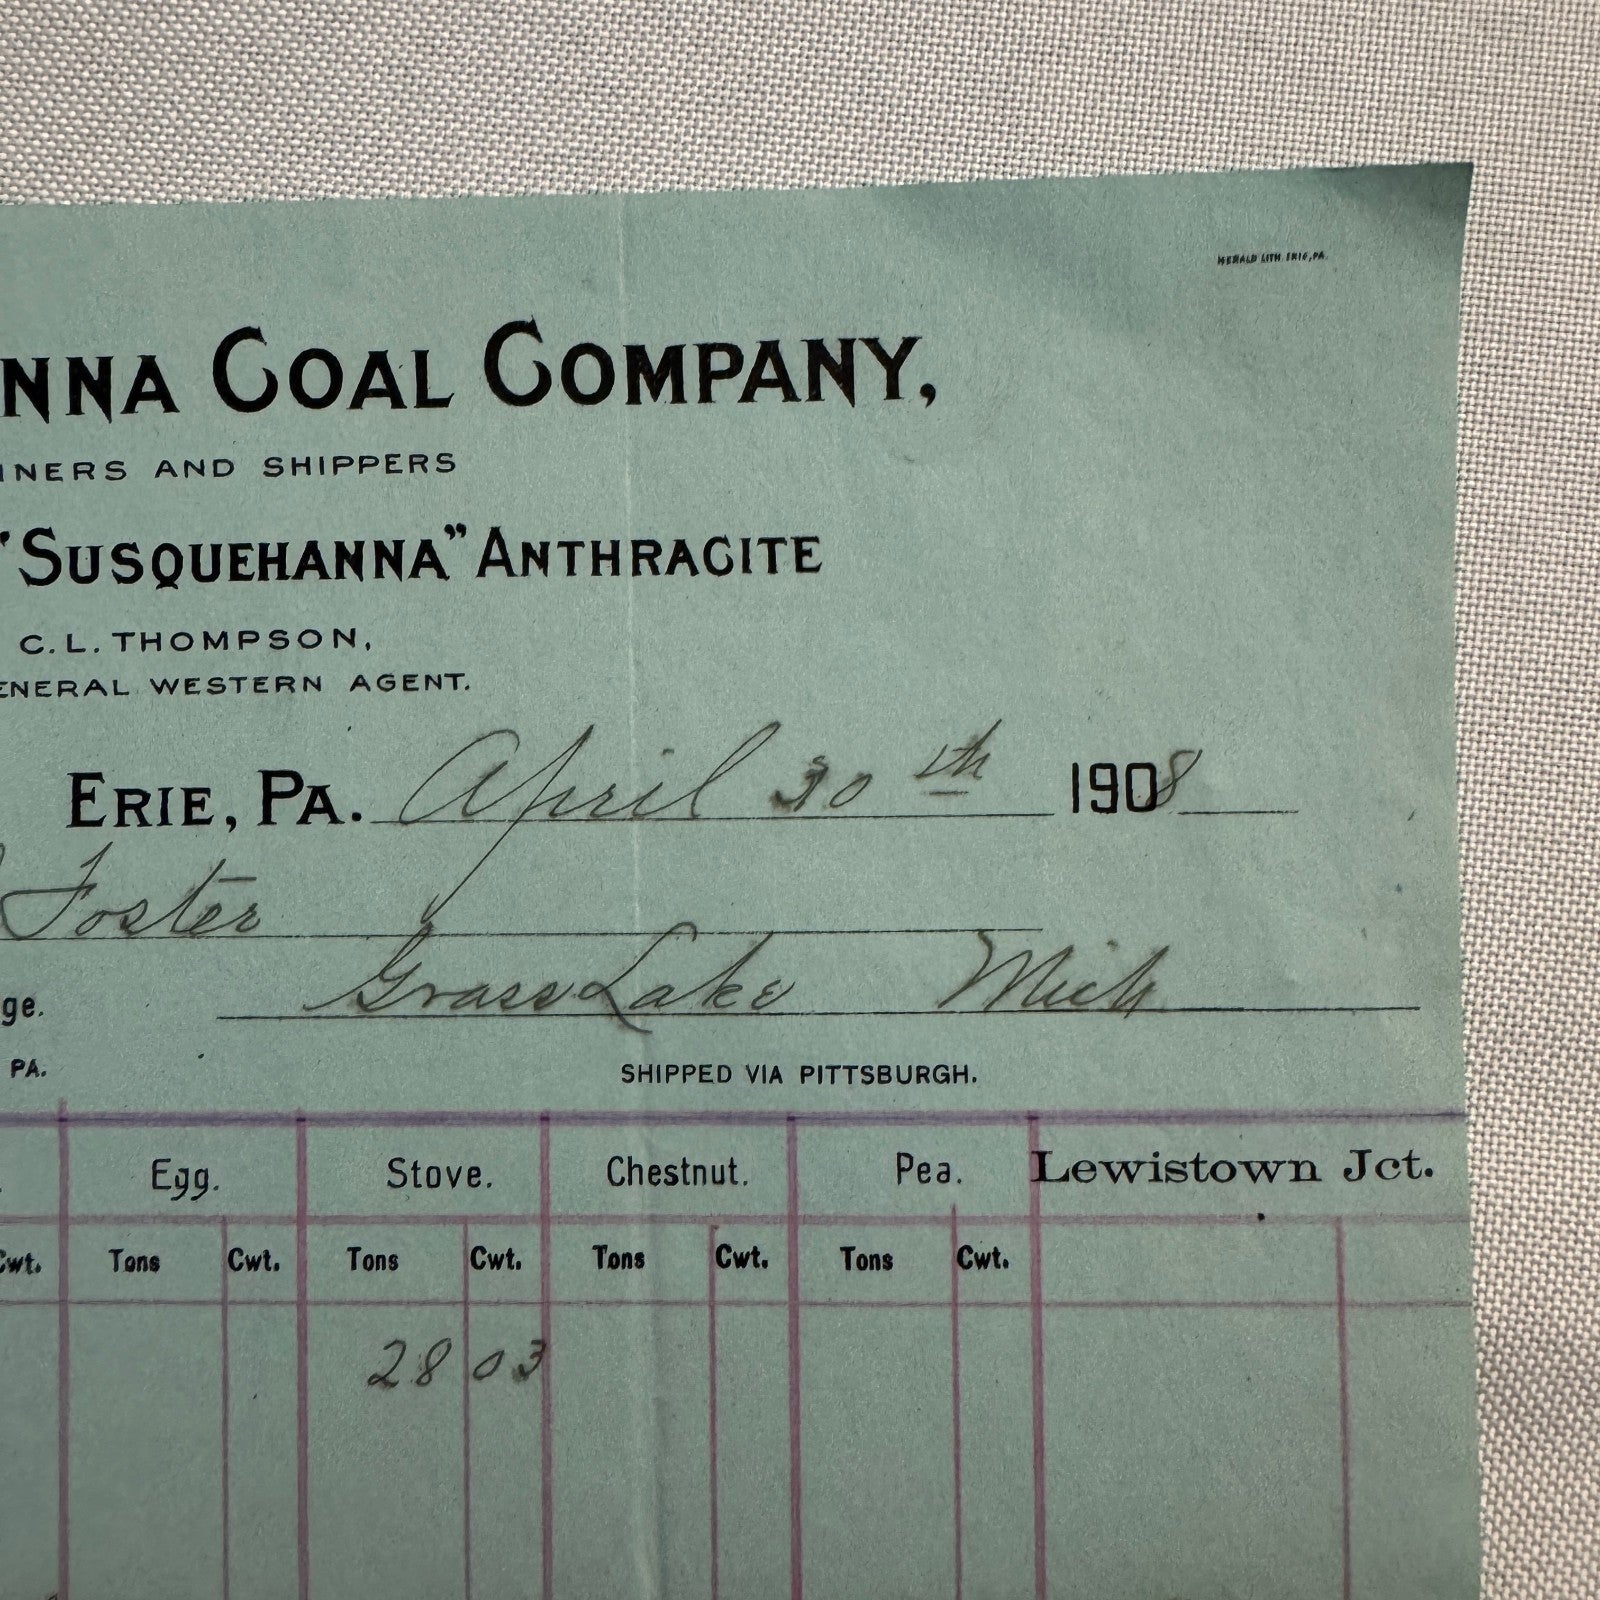 HERALD LITH. ERIE, PA.
NNA COAL COMPANY,
INERS AND SHIPPERS
"SUSQUEHANNA" ANTHRACITE
C. L. THOMPSON,
ENERAL WESTERN AGENT.
ERIE, PA. April 30th 1908
Foster
ge. Grass Lake Mich
PA. SHIPPED VIA PITTSBURGH.
Egg. Stove. Chestnut. Pea. Lewistown Jct.
Cwt. Tons Cwt. Tons Cwt. Tons Cwt. Tons Cwt.
28 03